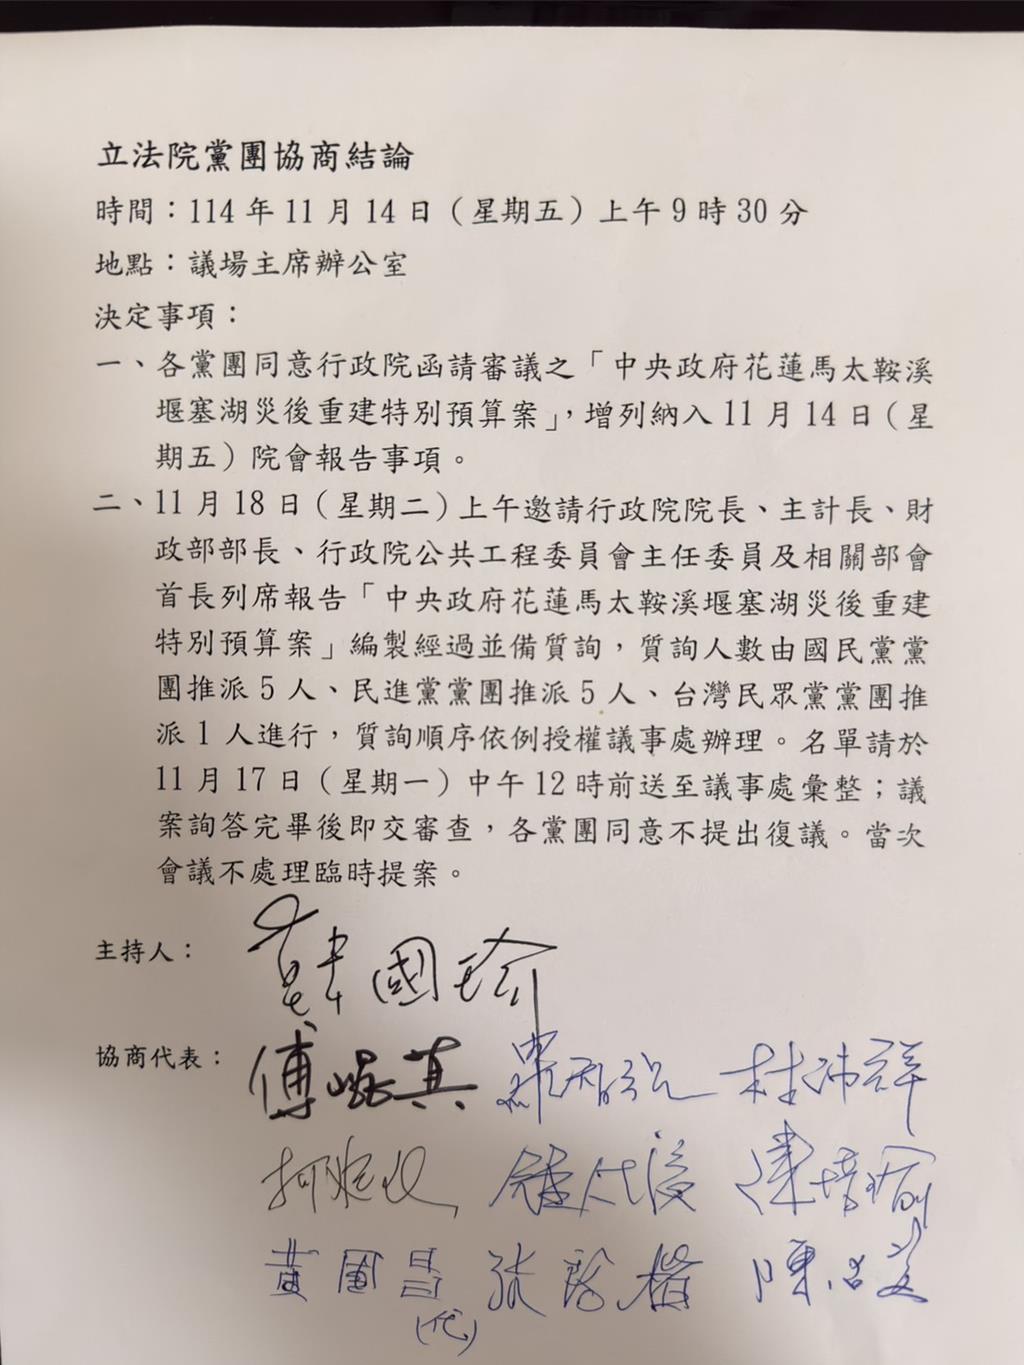 立法院黨團協商結論
時間：114 年 11 月 14 日（星期五）上午 9 時 30 分
地點：議場主席辦公室
決定事項：
一、各黨團同意行政院函請審議之「中央政府花蓮馬太鞍溪
堰塞湖災後重建特別預算案」，增列納入 11 月 14 日（星
期五）院會報告事項。
二、11 月 18 日（星期二）上午邀請行政院院長、主計長、財
政部部長、行政院公共工程委員會主任委員及相關部會
首長列席報告「中央政府花蓮馬太鞍溪堰塞湖災後重建
特別預算案」編製經過並備質詢，質詢人數由國民黨黨
團推派 5 人、民進黨黨團推派 5 人、台灣民眾黨黨團推
派 1 人進行，質詢順序依例授權議事處辦理。名單請於
11 月 17 日（星期一）中午 12 時前送至議事處彙整；議
案詢答完畢後即交審查，各黨團同意不提出復議。當次
會議不處理臨時提案。
主持人：韓國瑜
協商代表：傅崐萁 羅智強 林沛祥
柯建銘 鍾佳濱 陳培瑜
黃國昌 張啓楷
(代)